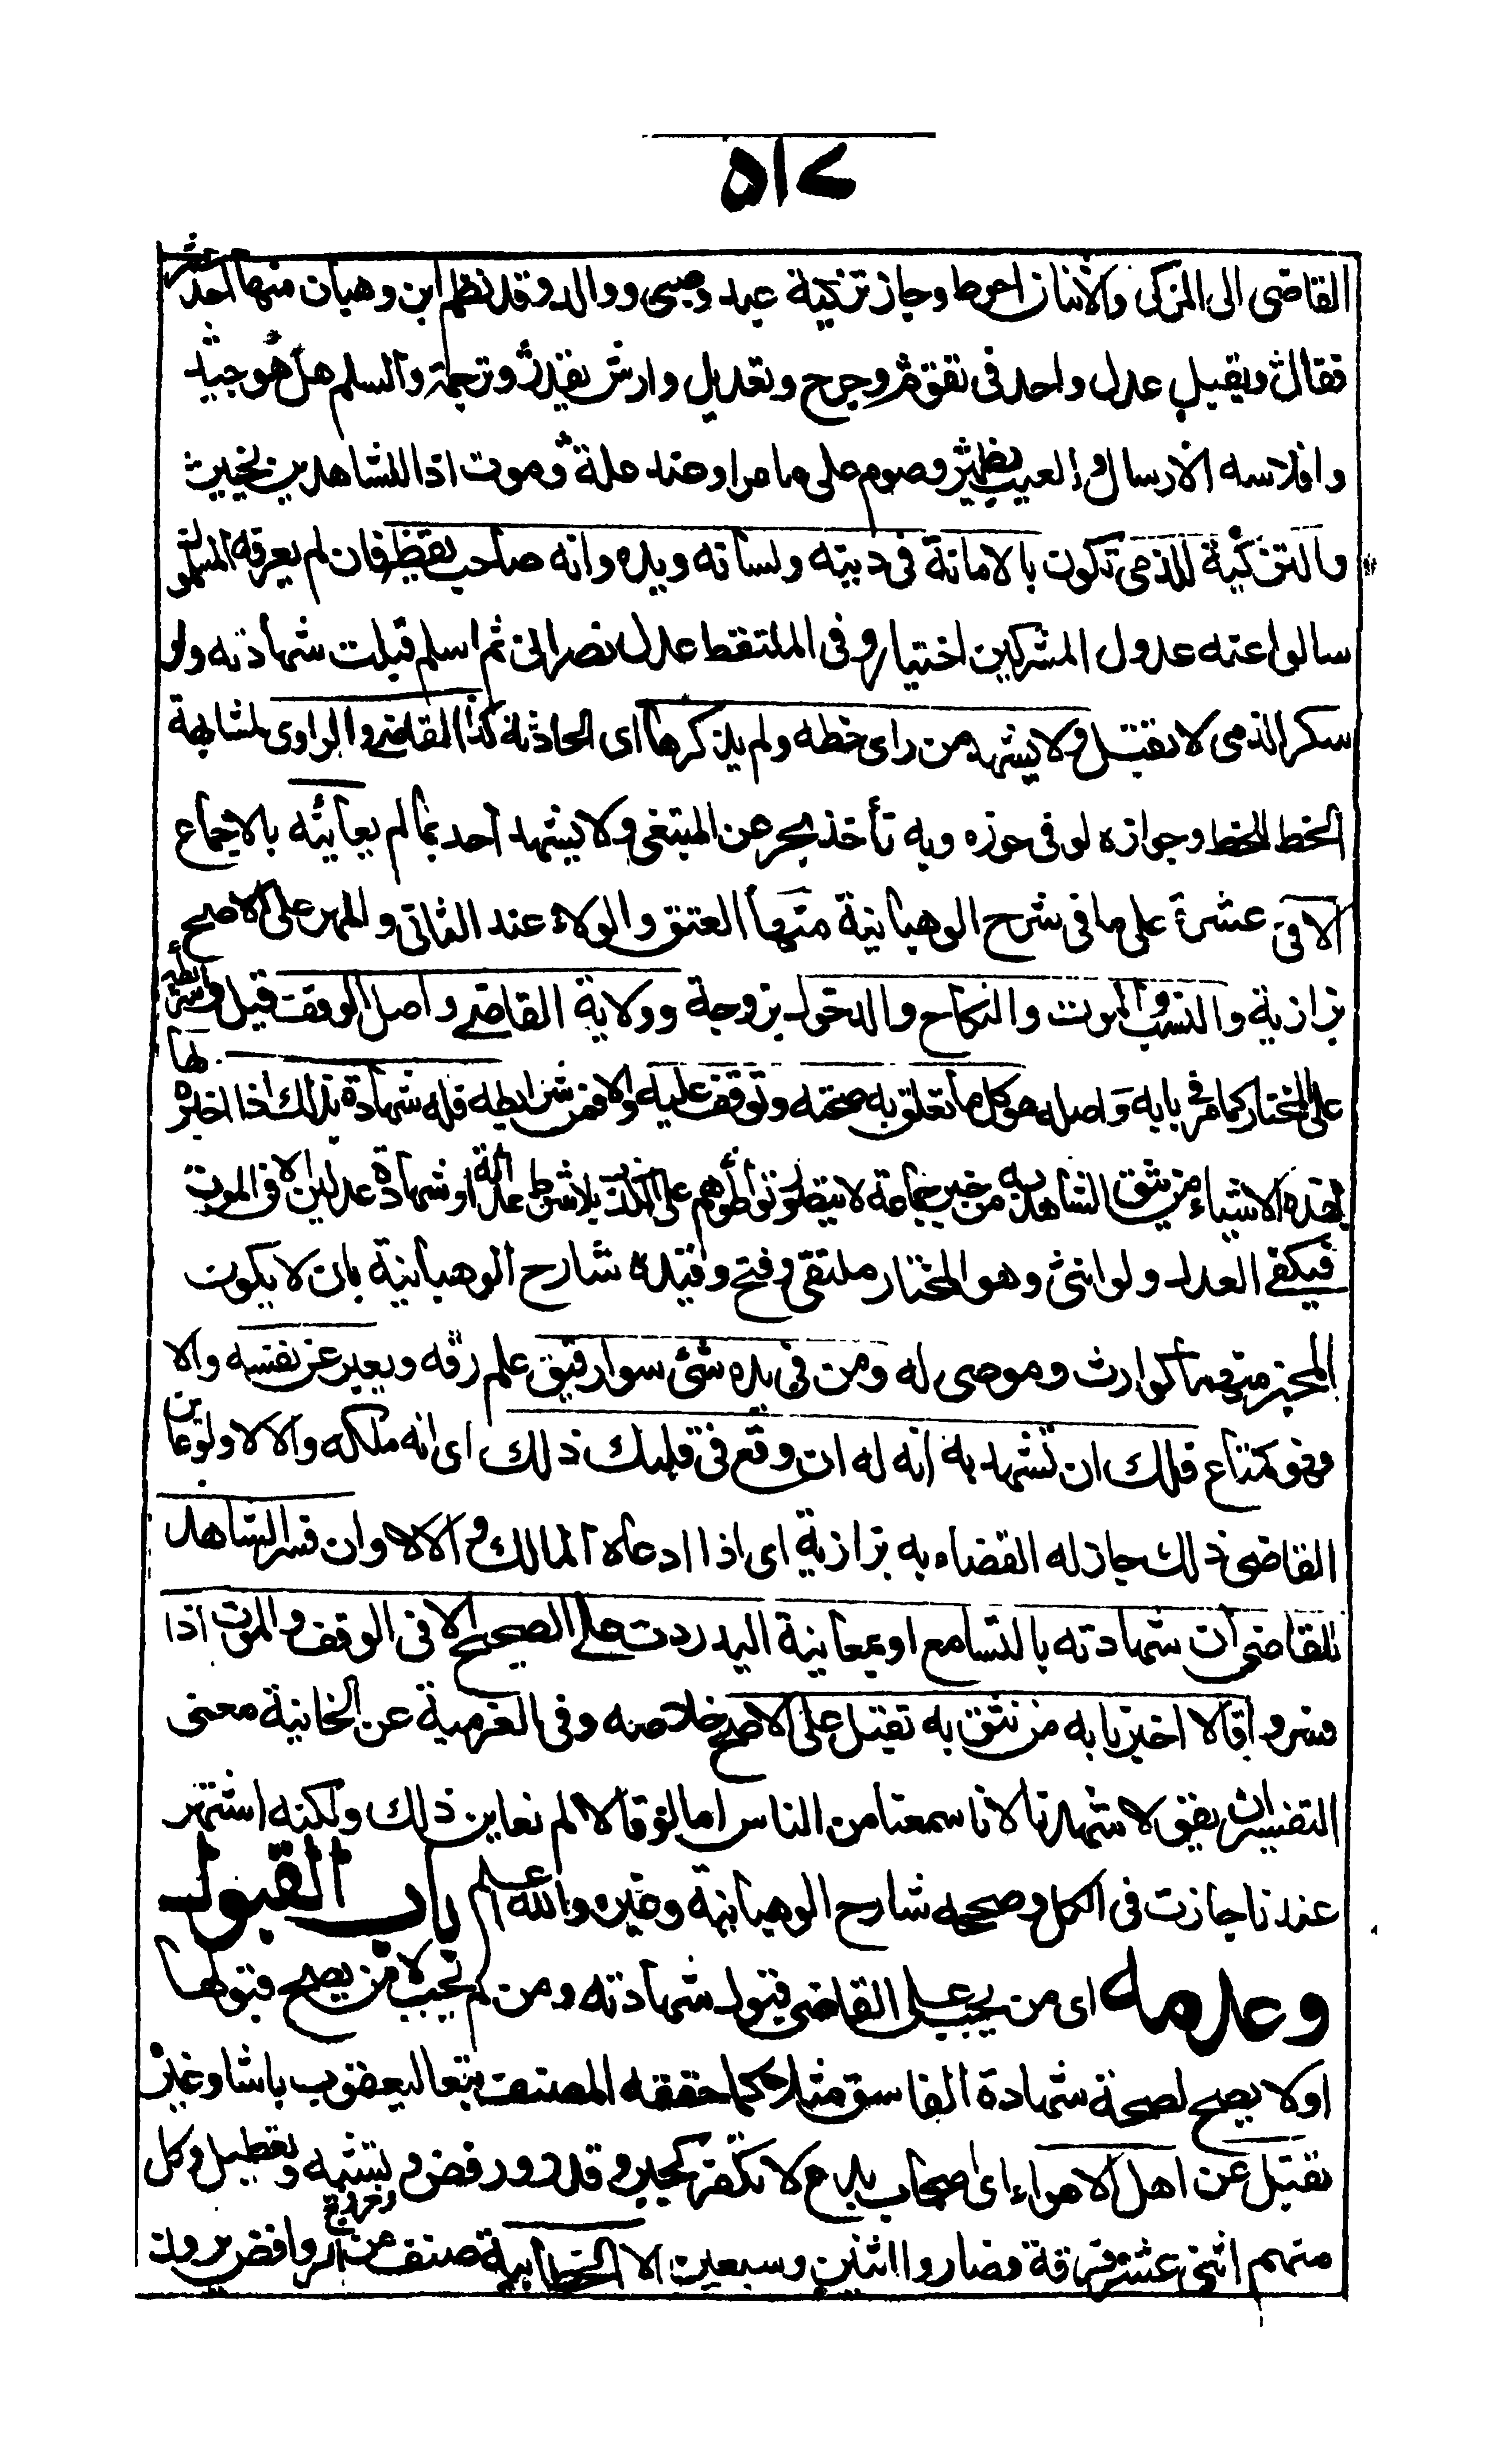 ٥١٧
القاضى الى المزكى والاثنان احوط وجاز تزكية عبد وصبى ووالد وقد نظم ابن وهبان منها احد عشر
فقال ويقبل عدل واحد فى تقوم وجرح وتعديل وارش يقدر وترجمة والسلم هل هو جيد
وافلاسه الارسال والعيب يظهر وصوم على ما مر او عند علة وموت اذا للشاهدين يخبر
والتزكية للذمى تكون بالامانة فى دينه ولسانه ويده وانه صاحب يقظة فان لم يعرفه المسلمون
سالوا عنه عدول المشركين اختيار وفى الملتقط عدل نصرانى ثم اسلم قبلت شهادته ولو
سكر الذمى لا تقبل ولا يشهد من راى خطه ولم يذكرها اى الحادثة كذا القاضى والراوى لمشابهة
الخط للخط وجوازه لو فى حوزه وبه تأخذ بحر عن المبتغى ولا يشهد احد بما لم يعاينه بالاجماع
الا فى عشرة على ما فى شرح الوهبانية منها العتق والولاء عند الثانى والمهر على الاصح
بزازية والنسب والموت والنكاح والدخول بزوجة وولاية القاضى واصل الوقف قيل وشرائطه
على المختار كما مر فى بابه واصله هو كل ما تعلق به صحته وتوقف عليه والا فمن شرائطه فله شهادة بذلك اذا اخبره بها
بهذه الاشياء من يثق الشاهد به من خبر جماعة لا يتصور تواطؤهم على الكذب بلا شرط عدالة او شهادة عدلين الا فى الموت
فيكفى العدل ولو انثى وهو المختار ملتقى وفتح وقيده شارح الوهبانية بان لا يكون
المخبر متهما كوارث وموصى له ومن فى يده شئ سوا رقيق علم رقه ويعبر عن نفسه والا
فهو كمتاع فلك ان تشهد به انه له ان وقع فى قلبك ذلك اى انه ملكه والا لا ولو عاين
القاضى ذلك جاز له القضاء به بزازية اى اذا ادعاه المالك والا لا وان فسر الشاهد
للقاضى ان شهادته بالتسامع او بمعاينة اليد ردت على الصحيح الا فى الوقف والموت اذا
فسرو اقالا اخبرنا به من نثق به تقبل على الاصح خلاصه وفى العزمية عن الخانية معنى
التفسير ان يقولا شهدنا لانا سمعنا من الناس اما لو قالا لم نعاين ذلك ولكنه اشتهر
عندنا جازت فى الكل وصححه شارح الوهبانية وغيره والله اعلم باب القبول
وعدمه اى من يجب على القاضى قبول شهادته ومن لم يجب لا من يصح قبولها
او لا يصح لصحة شهادة الفاسق مثلا كما حققه المصنف تبعا ليعقوب باشا وغيره
تقبل عن اهل الاهواء اى اصحاب بدع لا تكفر كجبر وقدر ورفض وخروج وتشبيه وتعطيل وكل
منهم اثنى عشر فرقة فصاروا اثنين وسبعين الا الخطابية صنف من الروافض يرون